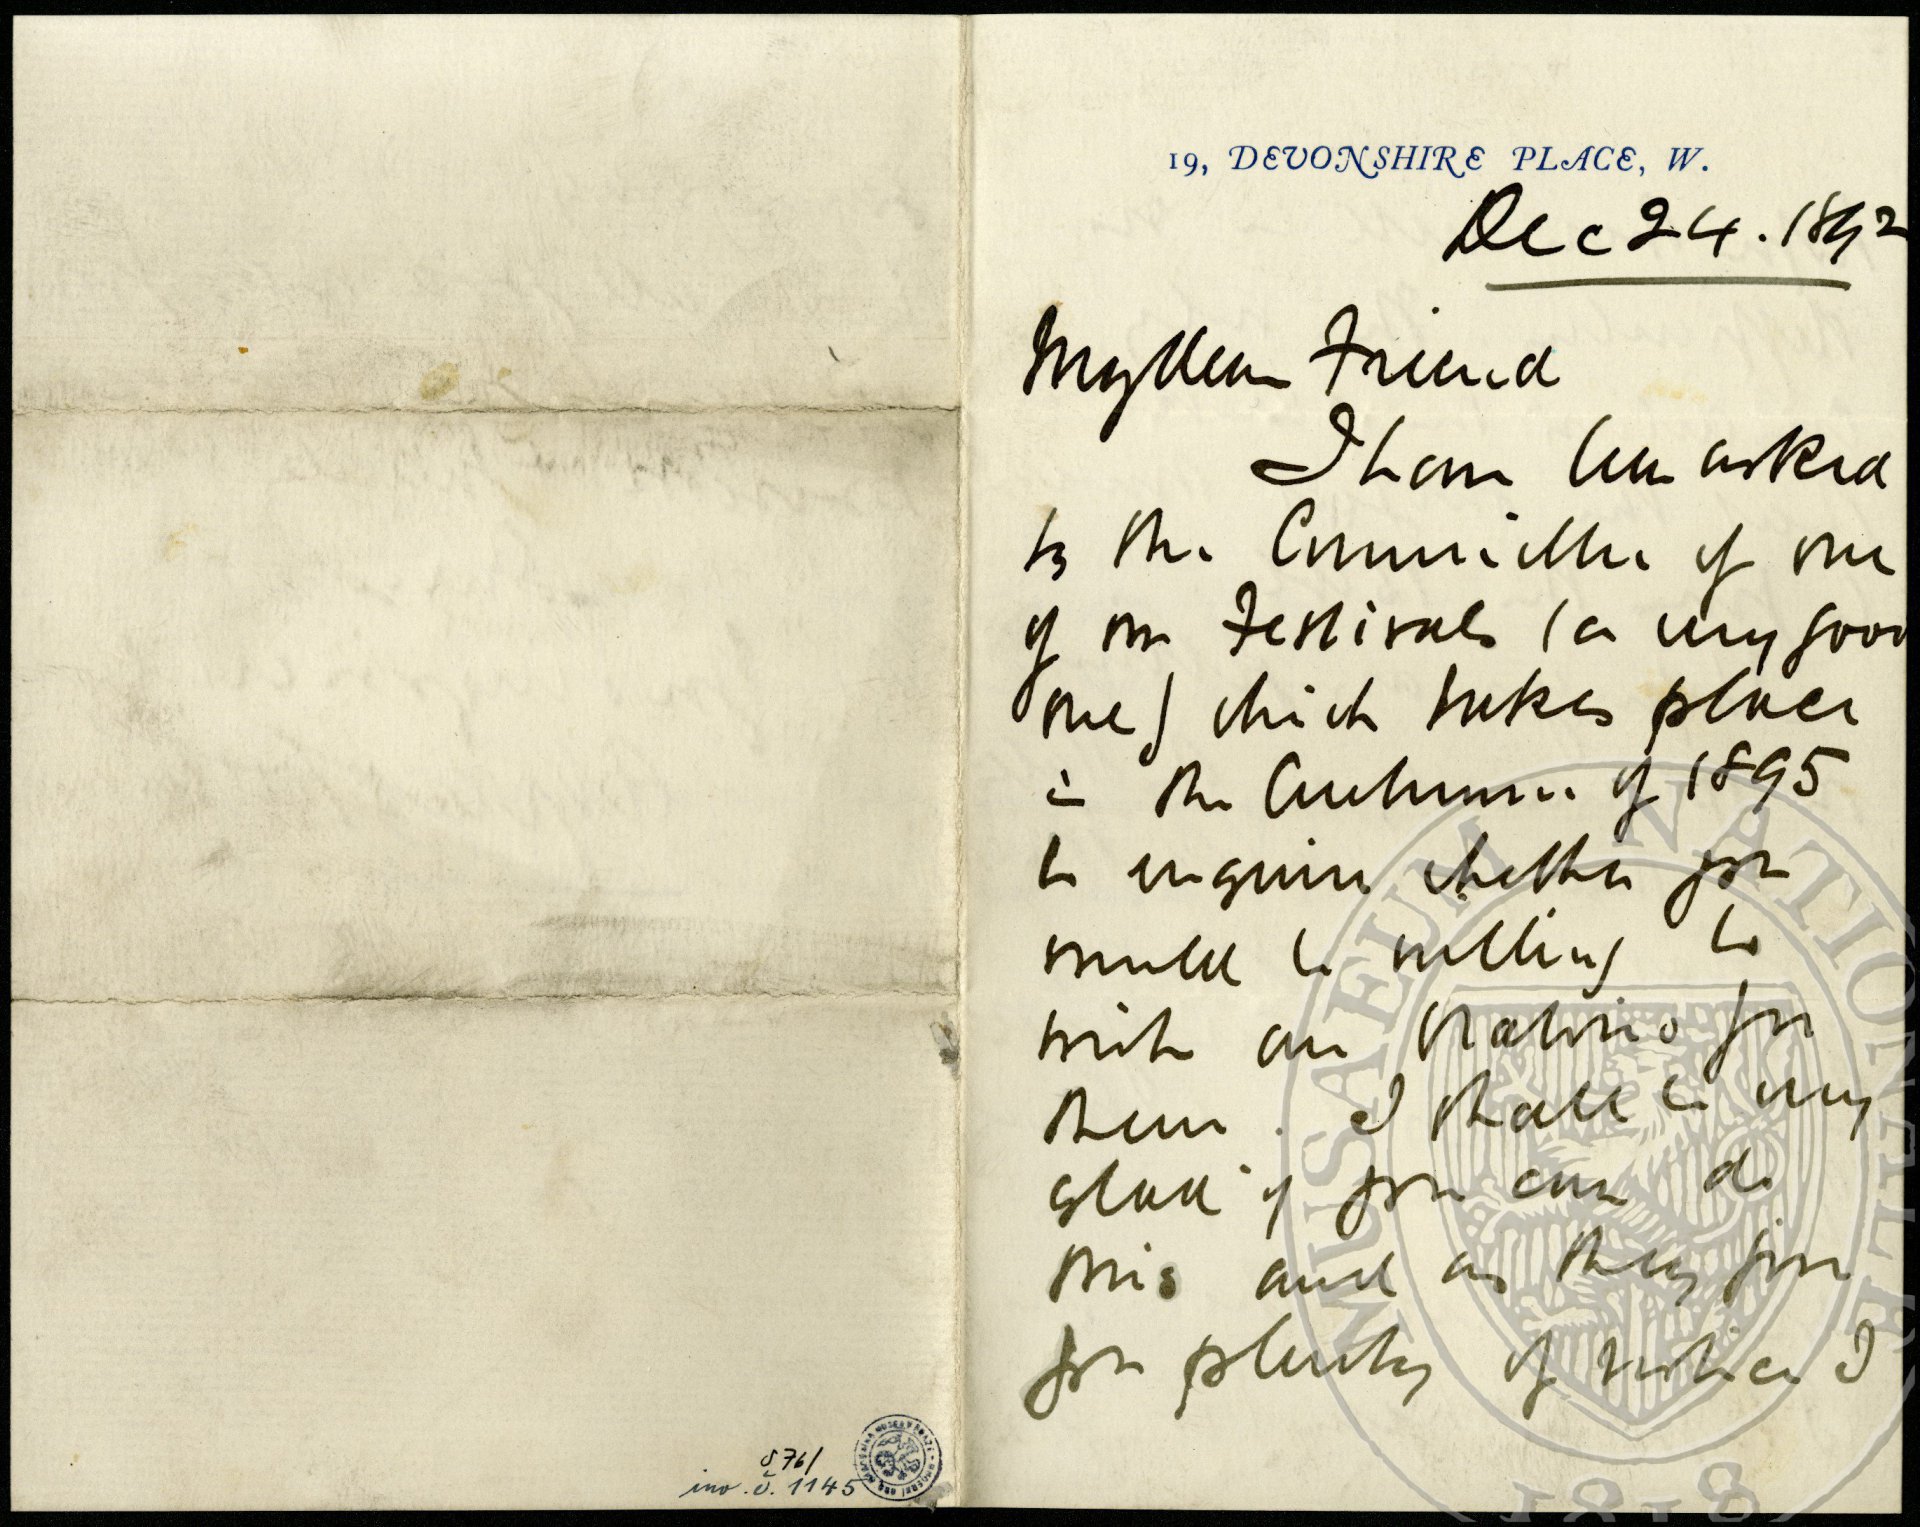 19, DEVONSHIRE PLACE, W.
Dec 24. 1892
My dear Friend
I have been asked
by the Committee of one
of our Festivals (a very good
one) which takes place
in the Autumn of 1895
to enquire whether you
would be willing to
write an Oratorio for
them. I shall be very
glad if you can do
this and as they give
you plenty of notice I
876/
inv. č. 1145
MUSAEUM NATIONALE
1818